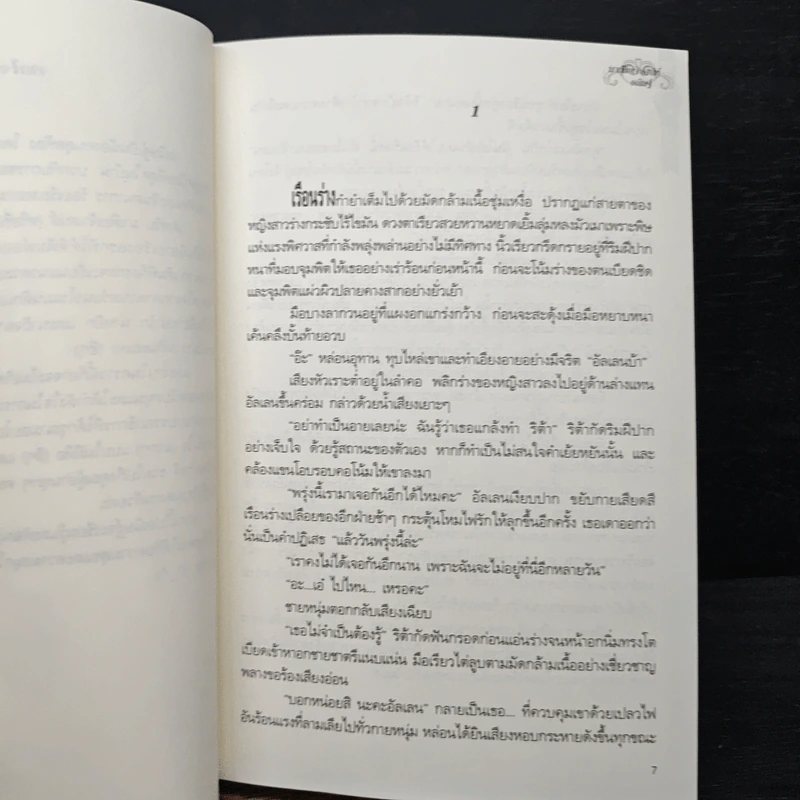 1
เรือนร่างกำยำเต็มไปด้วยมัดกล้ามเนื้อชุ่มเหงื่อ ปรากฏแก่สายตาของ
หญิงสาวร่างกระชับไร้ไขมัน ดวงตาเรียวสวยหวานหยาดเยิ้มลุ่มหลงมัวเมาเพราะพิษ
แห่งแรงพิศวาสที่กำลังพลุ่งพล่านอย่างไม่มีทิศทาง นิ้วเรียวกรีดกรายอยู่ที่ริมฝีปาก
หนาที่มอบจุมพิตให้เธออย่างเร่าร้อนก่อนหน้านี้ ก่อนจะโน้มร่างของตนเบียดชิด
และจุมพิตแผ่วผิวปลายคางสากอย่างยั่วเย้า
มือบางลากวนอยู่ที่แผงอกแกร่งกว้าง ก่อนจะสะดุ้งเมื่อมือหยาบหนา
เค้นคลึงบั้นท้ายอวบ
“อ๊ะ” หล่อนอุทาน ทุบไหล่เขาและทำเอียงอายอย่างมีจริต “อัลเลนบ้า”
เสียงหัวเราะต่ำอยู่ในลำคอ พลิกร่างของหญิงสาวลงไปอยู่ด้านล่างแทน
อัลเลนขึ้นคร่อม กล่าวด้วยน้ำเสียงเยาะๆ
“อย่าทำเป็นอายเลยน่ะ ฉันรู้ว่าเธอแกล้งทำ ริต้า” ริต้ากัดริมฝีปาก
อย่างเจ็บใจ ด้วยรู้สถานะของตัวเอง หากก็ทำเป็นไม่สนใจคำเย้ยหยันนั้น และ
คล้องแขนโอบรอบคอโน้มให้เขาลงมา
“พรุ่งนี้เรามาเจอกันอีกได้ไหมคะ” อัลเลนเงียบปาก ขยับกายเสียดสี
เรือนร่างเปลือยของอีกฝ่ายช้าๆ กระตุ้นโหมไฟรักให้ลุกขึ้นอีกครั้ง เธอเดาออกว่า
นั่นเป็นคำปฏิเสธ “แล้ววันพรุ่งนี้ล่ะ”
“เราคงไม่ได้เจอกันอีกนาน เพราะฉันจะไม่อยู่ที่นี่อีกหลายวัน”
“อะ...เอ๋ ไปไหน... เหรอคะ”
ชายหนุ่มตอกกลับเสียงเฉียบ
“เธอไม่จำเป็นต้องรู้” ริต้ากัดฟันกรอดก่อนแอ่นร่างจนหน้าอกนิ่มทรงโต
เบียดเข้าหาอกชายชาตรีแนบแน่น มือเรียวไต่ลูบตามมัดกล้ามเนื้ออย่างเชี่ยวชาญ
พลางขอร้องเสียงอ่อน
“บอกหน่อยสิ นะคะอัลเลน” กลายเป็นเธอ... ที่ควบคุมเขาด้วยเปลวไฟ
อันร้อนแรงที่ลามเลียไปทั่วกายหนุ่ม หล่อนได้ยินเสียงหอบกระหายดังขึ้นทุกขณะ
7